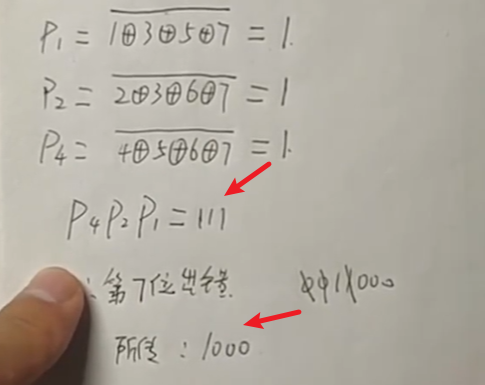 P₁ = 1⊕3⊕5⊕7 = 1.
P₂ = 2⊕3⊕6⊕7 = 1
P₄ = 4⊕5⊕6⊕7 = 1.
P₄P₂P₁ = 111
∴ 第7位出错
1000
所传：1000